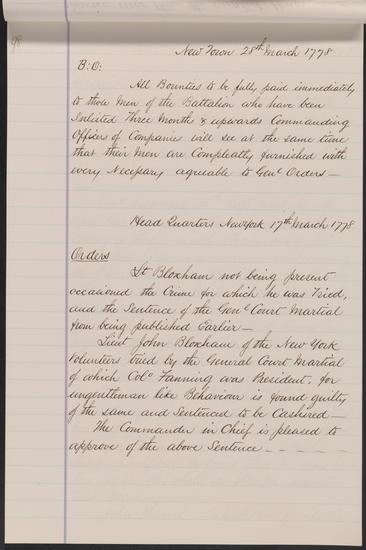 98
New Town 28th March 1778
B: O:
All Bounties to be fully paid immediately
to those Men of the Battalion who have been
Inlisted Three Months & upwards Commanding
Officers of Companies will see at the same time
that their Men are Compleatly furnished with
every Necessary agreeable to Genl Orders —
Head Quarters NewYork 17th March 1778
Orders
Lt Bloxham not being present
occasioned the Crime for which he was Tried,
and the Sentence of the Genl Court Martial
from being published Earlier —
Lieut John Bloxham of the New York
Volunteers tried by the General Court Martial
of which Colo Fanning was President, for
ungentleman like Behaviour is found guilty
of the same and Sentenced to be Cashired —
The Commander in Chief is pleased to
approve of the above Sentence - - - - -